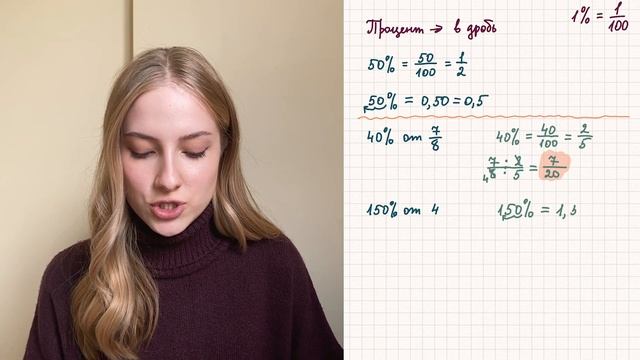 Процент → в дробь
1% = 1/100
50% = 50/100 = 1/2
50% = 0,50 = 0,5
40% от 7/8
40% = 40/100 = 2/5
7 · 2 / 8 · 5 = 7/20
4
150% от 4
1,50% = 1,5